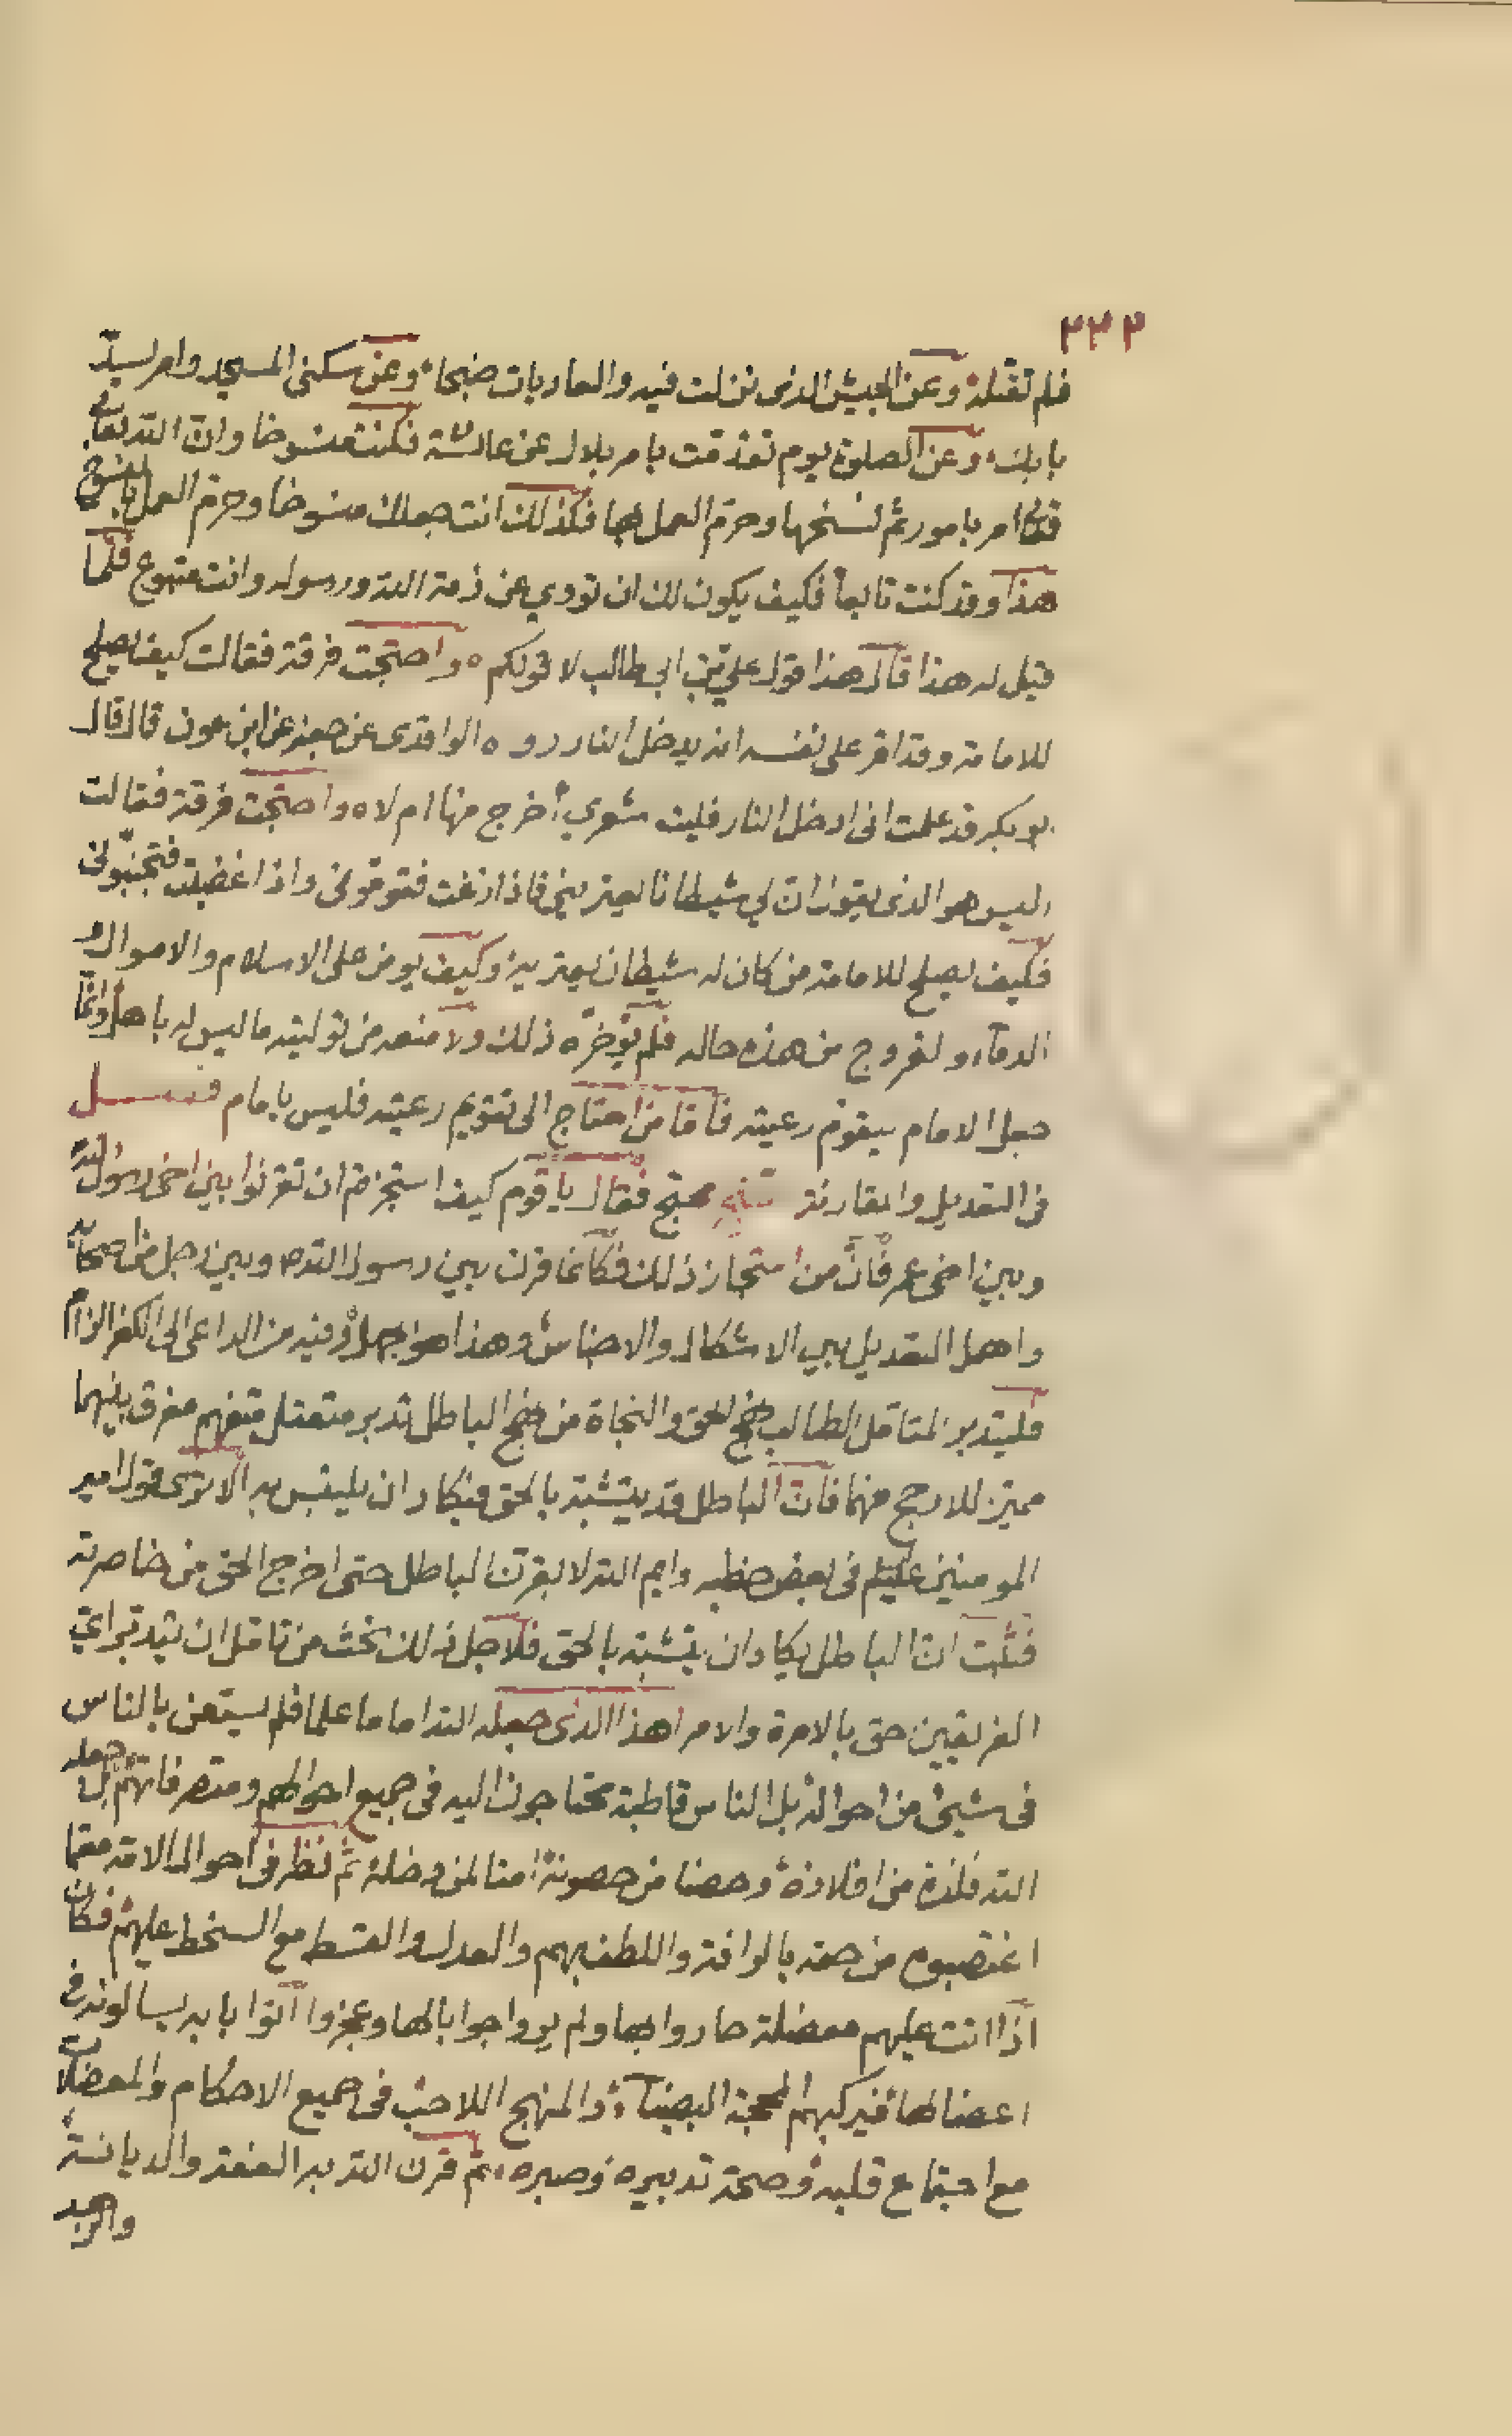 ٢٣٣
فلم تقتله وعن الجيش الذى نزلت فيه والعاديات ضبحا وعن سكنى المسجد وامر بسد
بابك وعن الصلوة يوم تقدمت بامر بلال عن عائشة فكنت منسوخا وان الله تعالى
قد امر بامور ثم نسخها وحرم العمل بها فكذلك انت جعلك منسوخا وحرم العمل بالمنسوخ
هذا وقد كنت تابعا فكيف يكون لك ان تودي عن ذمة الله ورسوله وانت متبوع فلما
قيل له هذا قال هذا قول علي بن ابي طالب لا قولكم ه واحتجت فرقة فقالت كيف يصلح
للامامة وقد اقر على نفسه انه يدخل النار روى الواقدى عن جعفر عن ابن عون قال قال
ابو بكر قد علمت انى ادخل النار فليت شعري أخرج منها ام لا ه واحتجت فرقة فقالت
اليس هو الذى يقول ان لي شيطانا يعتريني فاذا زغت فقوموني واذا غضبت فتجنبوني
فكيف يصلح للامامة من كان له شيطان يعتريه وكيف يومن على الاسلام والاموال و
الدماء والفروج من هذه حاله فلم يوخره ذلك ولا منعه من توليته ما ليس له باهل وانما
جعل الامام ليقوم رعيته فاما من احتاج الى تقويم رعيته فليس بامام فصل
فى التعديل والمقارنة محتج فقال يا قوم كيف استجزتم ان تقرنوا بين اخى رسول الله
وبين اخى عمر فان من استجاز ذلك فكأنما قرن بين رسول الله ص وبين رجل من اصحابه
واهمل التعديل بين الاشكال والاجناس وهذا هو الجهل وفيه من الداعى الى الكفر الزام
فليتدبر المتامل الطالب نهج الحق والنجاة من نهج الباطل تدبر متعقل متفهم مفرق بينهما
مميز للارجح منهما فان الباطل قد يتشبه بالحق فيكاد ان يلتبس به الا ترى قول امير
المومنين عليلم فى بعض خطبه وايم الله لابقرن الباطل حتى اخرج الحق من خاصرته
فثبت ان الباطل يكاد ان يتشبه بالحق فلاجل ذلك نحث من تامل ان يتدبر اي
الفريقين احق بالامرة والامر اهذا الذى جعله الله اماما علما فلم يستعن بالناس
فى شيئ من احواله بل الناس قاطبة محتاجون اليه فى جميع احوالهم ومتصرفاتهم بل جعله
الله فلذة من افلاذه وحصنا من حصونه امنا لمن دخله ثم نظر فى احوال الامة مما
اغتصبوه من حقه بالرافة واللطف بهم والعدل والقسط مع السخط عليهم فكان
اذا اتت عليهم معضلة حاروا بها ولم يروا جوابا لها وعجزوا اتوا بابه يسالونه فى
اعضالها فيركبهم المحجة البيضاء والمنهج اللاحب فى جميع الاحكام والمعضلات
مع اجتماع قلبه وصحة تدبيره وصبره ثم قرن الله به العفة والديانة
والزهد